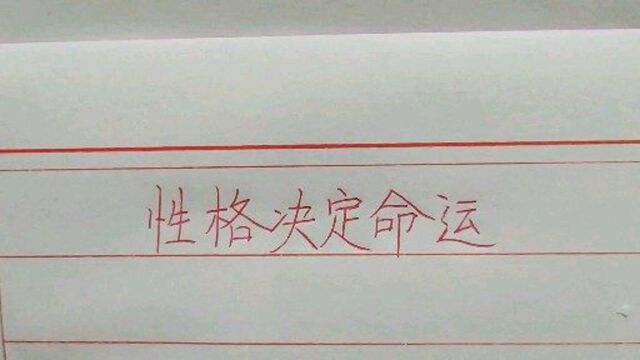 性格决定命运